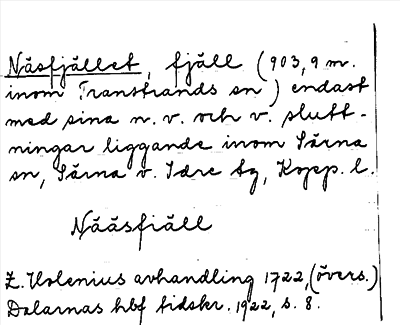 Näsfjället, fjäll (903,9 m.
inom Transtrands sn) endast
med sina n. v. och v. slutt-
ningar liggande inom Särna
sn, Särna o. Idre tg, Kopp. l.
Nääsfiäll
Z. Holenius avhandling 1722, (övers.)
Dalarnas hbf tidskr. 1922, s. 8.